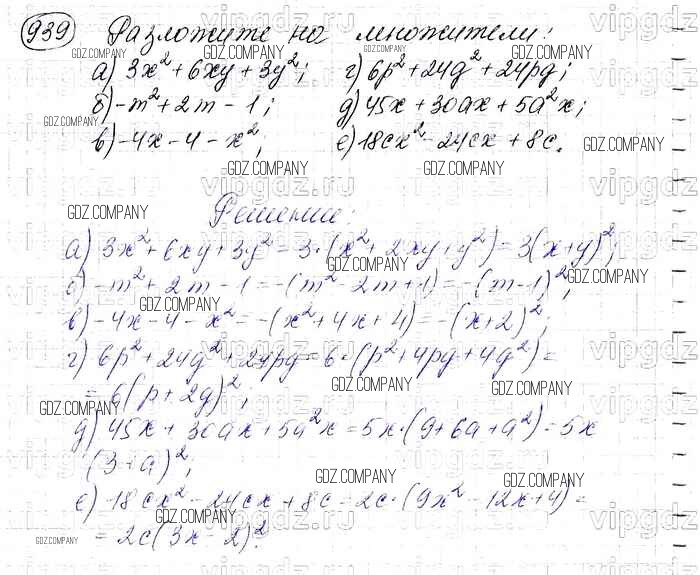 939 Разложите на множители:
а) 3x² + 6xy + 3y²; г) 6p² + 24q² + 24pq;
б) -m² + 2m - 1; д) 45x + 30ax + 5a²x;
в) -4x - 4 - x²; е) 18cx² - 24cx + 8c.
Решение:
а) 3x² + 6xy + 3y² = 3·(x² + 2xy + y²) = 3(x+y)²;
б) -m² + 2m - 1 = -(m² - 2m + 1) = -(m-1)²;
в) -4x - 4 - x² = -(x² + 4x + 4) = -(x+2)²;
г) 6p² + 24q² + 24pq = 6·(p² + 4pq + 4q²) =
= 6(p + 2q)²;
д) 45x + 30ax + 5a²x = 5x·(9 + 6a + a²) = 5x
(3+a)²;
е) 18cx² - 24cx + 8c = 2c·(9x² - 12x + 4) =
= 2c(3x - 2)².
GDZ.COMPANY
vipgdz.ru